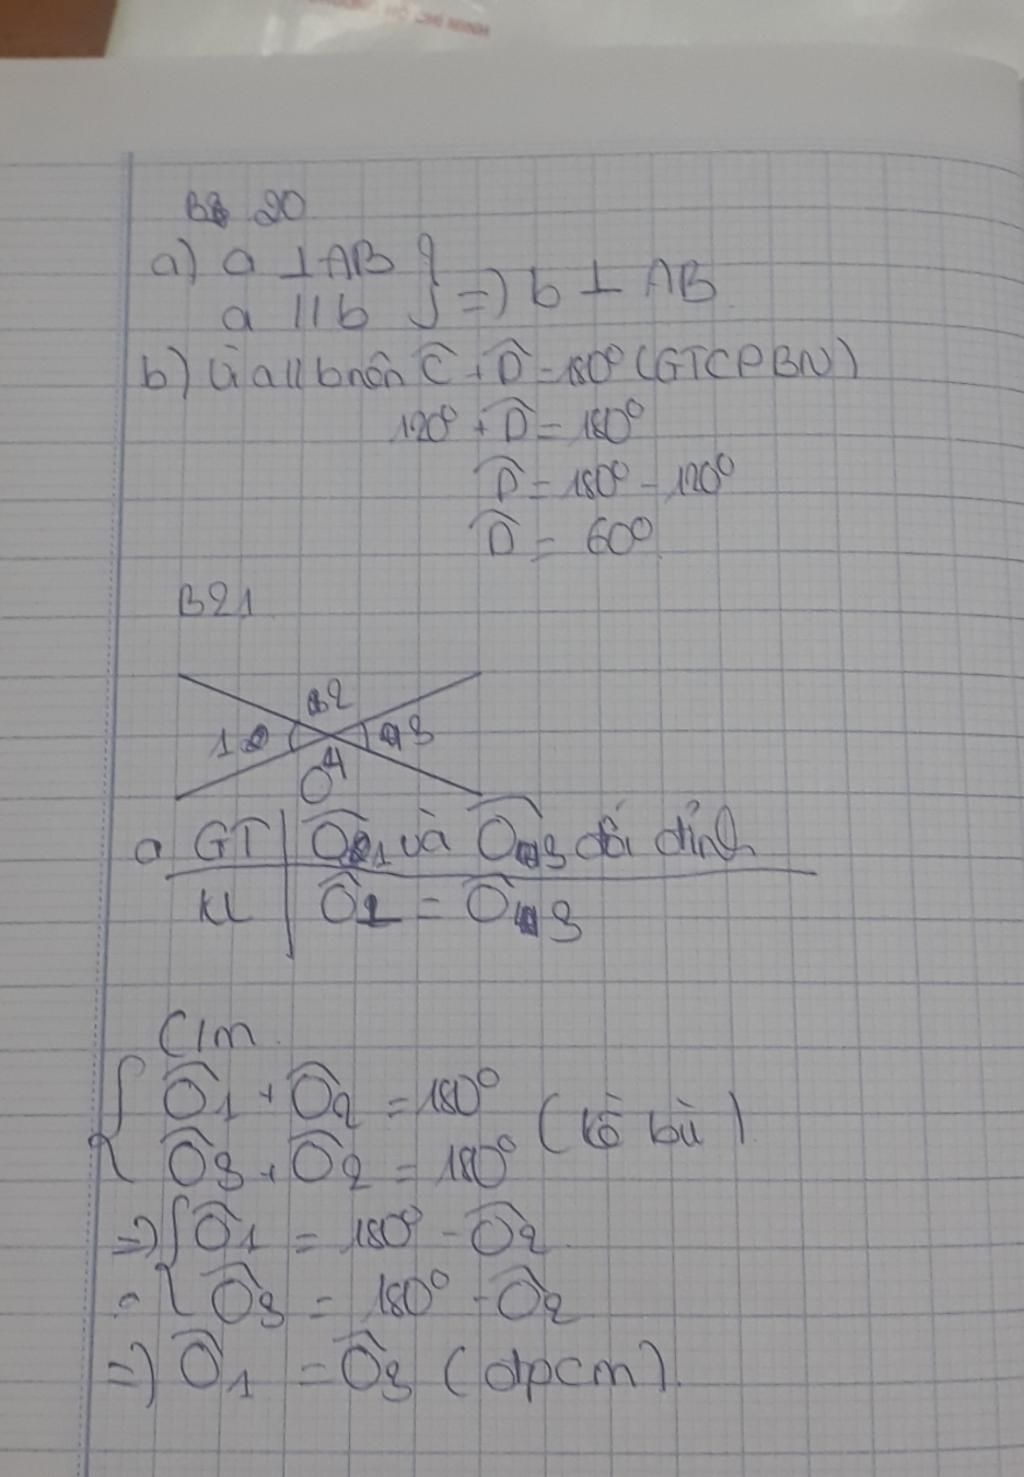 B 20
a) a ⊥ AB
a // b } => b ⊥ AB
b) Vì a // b nên Ĉ + D̂ = 180° (GTCPBN)
120° + D̂ = 180°
D̂ = 180° - 120°
D̂ = 60°
B21
2
1 3
4
O
a GT | Ô1 và Ô3 đối đỉnh
KL | Ô1 = Ô3
C/m
{ Ô1 + Ô2 = 180°
Ô3 + Ô2 = 180° (kề bù)
=> { Ô1 = 180° - Ô2
Ô3 = 180° - Ô2
=> Ô1 = Ô3 (đpcm).